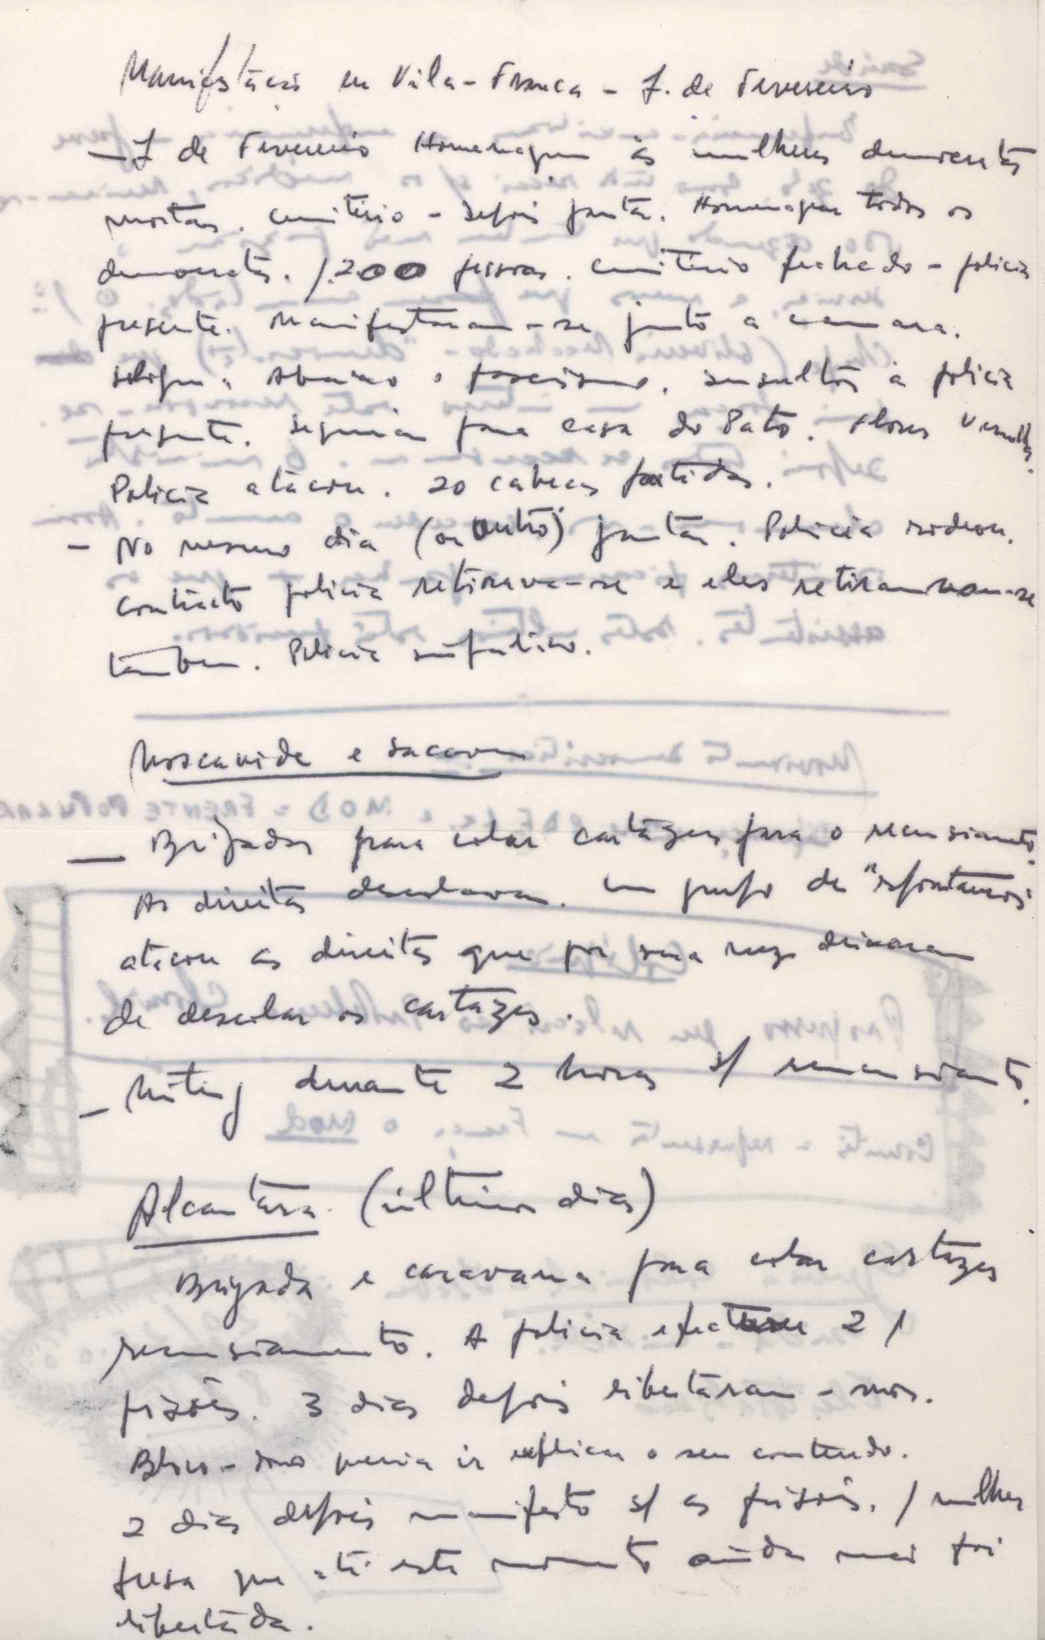 Manifestação em Vila-Franca - 1. de Fevereiro
- 1 de Fevereiro Homenagem às mulheres democratas
mortas. cemitério - depois jantar. Homenagem todos os
democratas. 1.200 pessoas. cemitério fechado - policia
presente. Manifestaram-se junto a camara.
Abaixo o fascismo. insultos à policia
presente. Seguiram para casa do Pato. Flores vermelhas.
Policia atacou. 20 cabeças partidas.
- No mesmo dia (ou outro) jantar. Policia rodeou.
Contacto policia retirava-se e eles retiravam-se
tambem. Policia
Moscavide e Sacavem
- Brigadas para colar cartazes para o recenseamento.
As direitas descolavam. Um grupo de "espontaneos"
atacou as direitas que por sua vez deixaram
de descolar os cartazes.
- Miting durante 2 horas s/ recenseamento.
Alcantara (últimos dias)
Brigada e caravana para colar cartazes
recenseamento. A policia efectuou 21
prisões. 3 dias depois libertaram-nos.
queria ir explicar o seu conteudo.
2 dias depois manifesto s/ as prisões. 1 mulher
presa que até este momento ainda não foi
libertada.